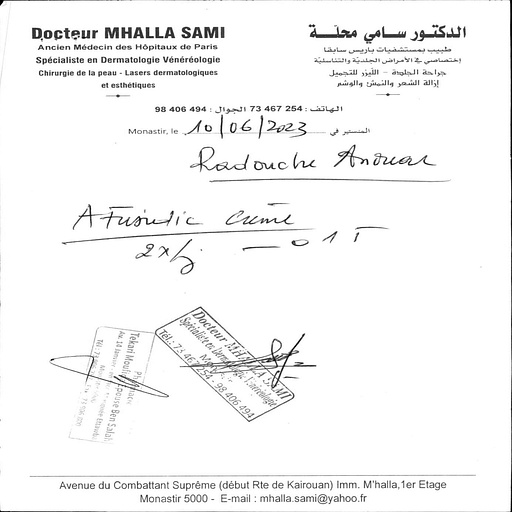 Docteur MHALLA SAMI
Ancien Médecin des Hôpitaux de Paris
Spécialiste en Dermatologie Vénéréologie
Chirurgie de la peau - Lasers dermatologiques
et esthétiques
الدكتور سامي محلة
طبيب بمستشفيات باريس سابقا
إختصاصي في الأمراض الجلدية والتناسلية
جراحة الجلدة - الليزر للتجميل
إزالة الشعر والنمش والوشم
الهاتف : 73 467 254 الجوال : 98 406 494
Monastir, le 10/06/2023 المنستير في
Radouche Anouar
Crème
2x/j 01
Docteur MHALLA SAMI
Spécialiste en Dermatologie Vénéréologie
98 406 494
Avenue du Combattant Suprême (début Rte de Kairouan) Imm. M'halla,1er Etage
Monastir 5000 - E-mail : mhalla.sami@yahoo.fr